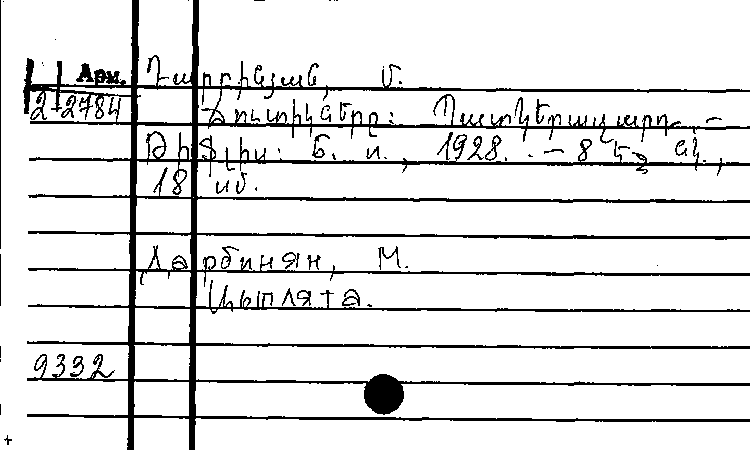 Арм. Դարբինյան, Մ.
2-2784 Ճուտիկները: Պատկերազարդ. –
Թիֆլիս: Բ. ի., 1928. – 8 էջ նկ.,
18 սմ.
Дарбинян, М.
Цыплята.
9332